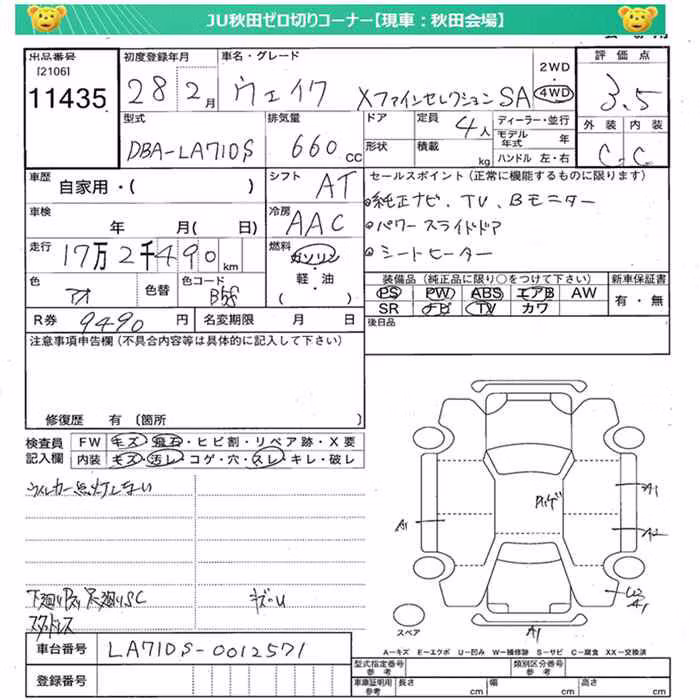 JU秋田ゼロ切りコーナー【現車：秋田会場】
出品番号 [2106] 11435
初度登録年月 28 2月
車名・グレード ウェイク XファインセレクションSA
2WD 4WD
評価点 3.5
外装 内装 C C
型式 DBA-LA710S
排気量 660cc
ドア 定員 4人
形状 積載 kg
ディーラー・並行
モデル年式 年
ハンドル 左・右
車歴 自家用・( )
シフト AT
セールスポイント(正常に機能するものに限ります)
・純正ナビ、TV、Bモニター
・パワースライドドア
・シートヒーター
車検 年 月( 日)
冷房 AAC
走行 17万2千490km
燃料 ガソリン・軽油 ( )
色 アオ 色替 色コード
装備品(純正品に限り○をつけて下さい)
PS PW ABS エアB AW
SR ナビ TV カワ
新車保証書 有・無
R券 9490円
名変期限 月 日
後日品
注意事項申告欄(不具合内容等は具体的に記入して下さい)
修復歴 有 〔箇所 〕
検査員記入欄
FW キズ・飛石・ヒビ割・リペア跡・X要
内装 キズ・汚レ・コゲ・穴・スレ・キレ・破レ
ウィンカー点灯しない
下廻りサビ 足廻りSC
スタッドレス
A1
A1
A2
A1
A1
スペア
A-キズ E-エクボ U-凹み W-補修跡 S-サビ C-腐食 XX-交換済
車台番号 LA710S-0012571
登録番号
型式指定番号 参考
類別区分番号 参考
車庫証明用 参考 長さ cm 幅 cm 高さ cm